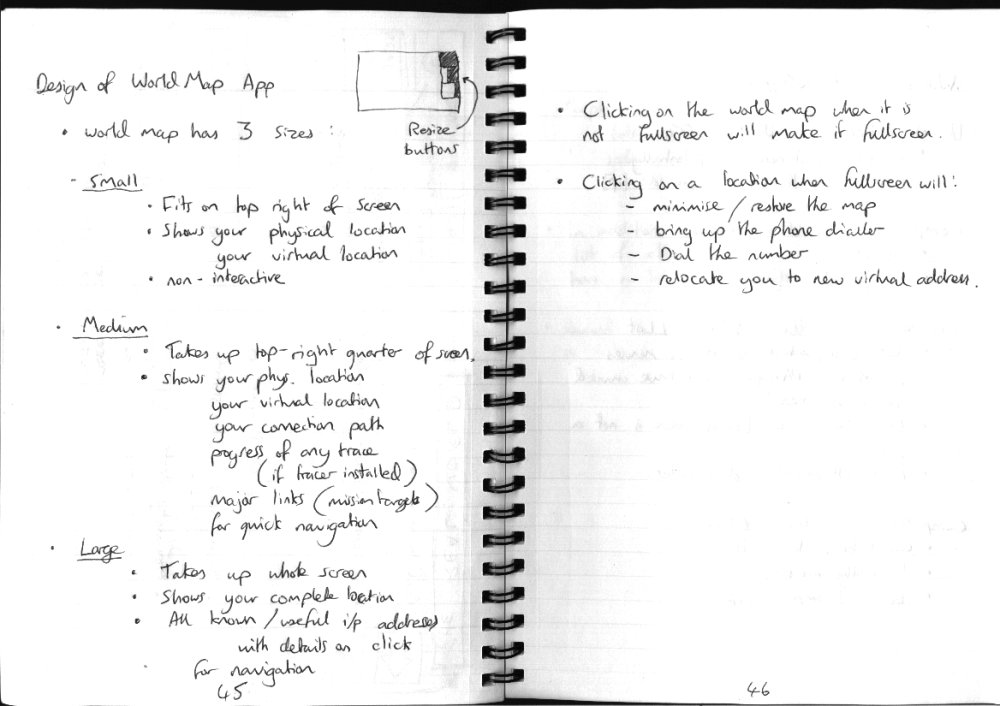 Design of World Map App
Resize
buttons
• world map has 3 sizes :
- Small
• Fits on top right of screen
• Shows your physical location
your virtual location
• non-interactive
• Medium
• Takes up top-right quarter of screen.
• shows your phys. location
your virtual location
your connection path
progress of any trace
(if tracer installed)
major links (mission targets)
for quick navigation
• Large
• Takes up whole screen
• Shows your complete location
• All known/useful i/p addresses
with details on click
for navigation
45
• Clicking on the world map when it is
not fullscreen will make it fullscreen.
• Clicking on a location when fullscreen will:
- minimise/restore the map
- bring up the phone dialler
- Dial the number
- relocate you to new virtual address.
46